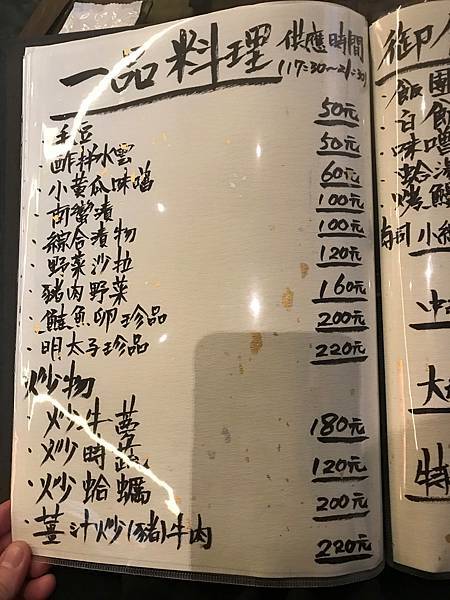 一品料理 供應時間
(17:30~21:30)
·毛豆 50元
·酢拌水雲 50元
·小黃瓜味噌 60元
·阿蟹漬 100元
·綜合漬物 100元
·野菜沙拉 120元
·豬肉野菜 160元
·鮭魚卵珍品 200元
·明太子珍品 220元
炒物
·炒牛蒡 180元
·炒時蔬 120元
·炒蛤蠣 200元
·薑汁炒(豬)牛肉 220元
御
·飯團
·白飯
·味噌
·蛤湯
·烤鰻
壽司 小
中
大
特